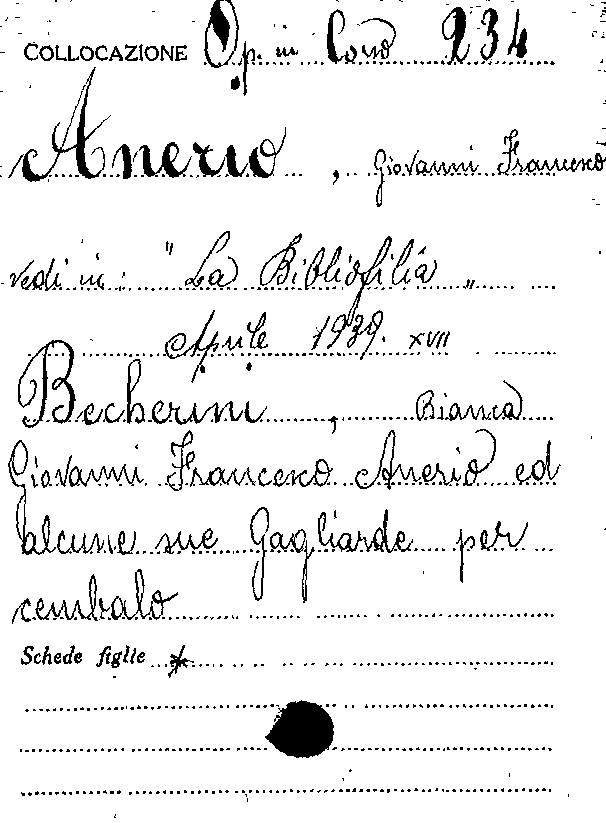 COLLOCAZIONE Op. in Cons 234
Anerio, Giovanni Francesco
vedi in: "La Bibliofilia"
Aprile 1939. XVII
Becherini, Bianca
Giovanni Francesco Anerio ed
alcune sue Gagliarde per
cembalo
Schede figlie *